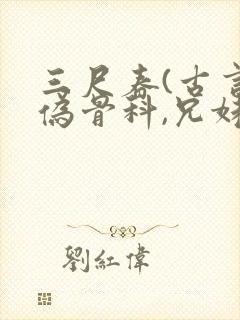 三尺春(古言
伪骨科,兄妹
劉紅偉